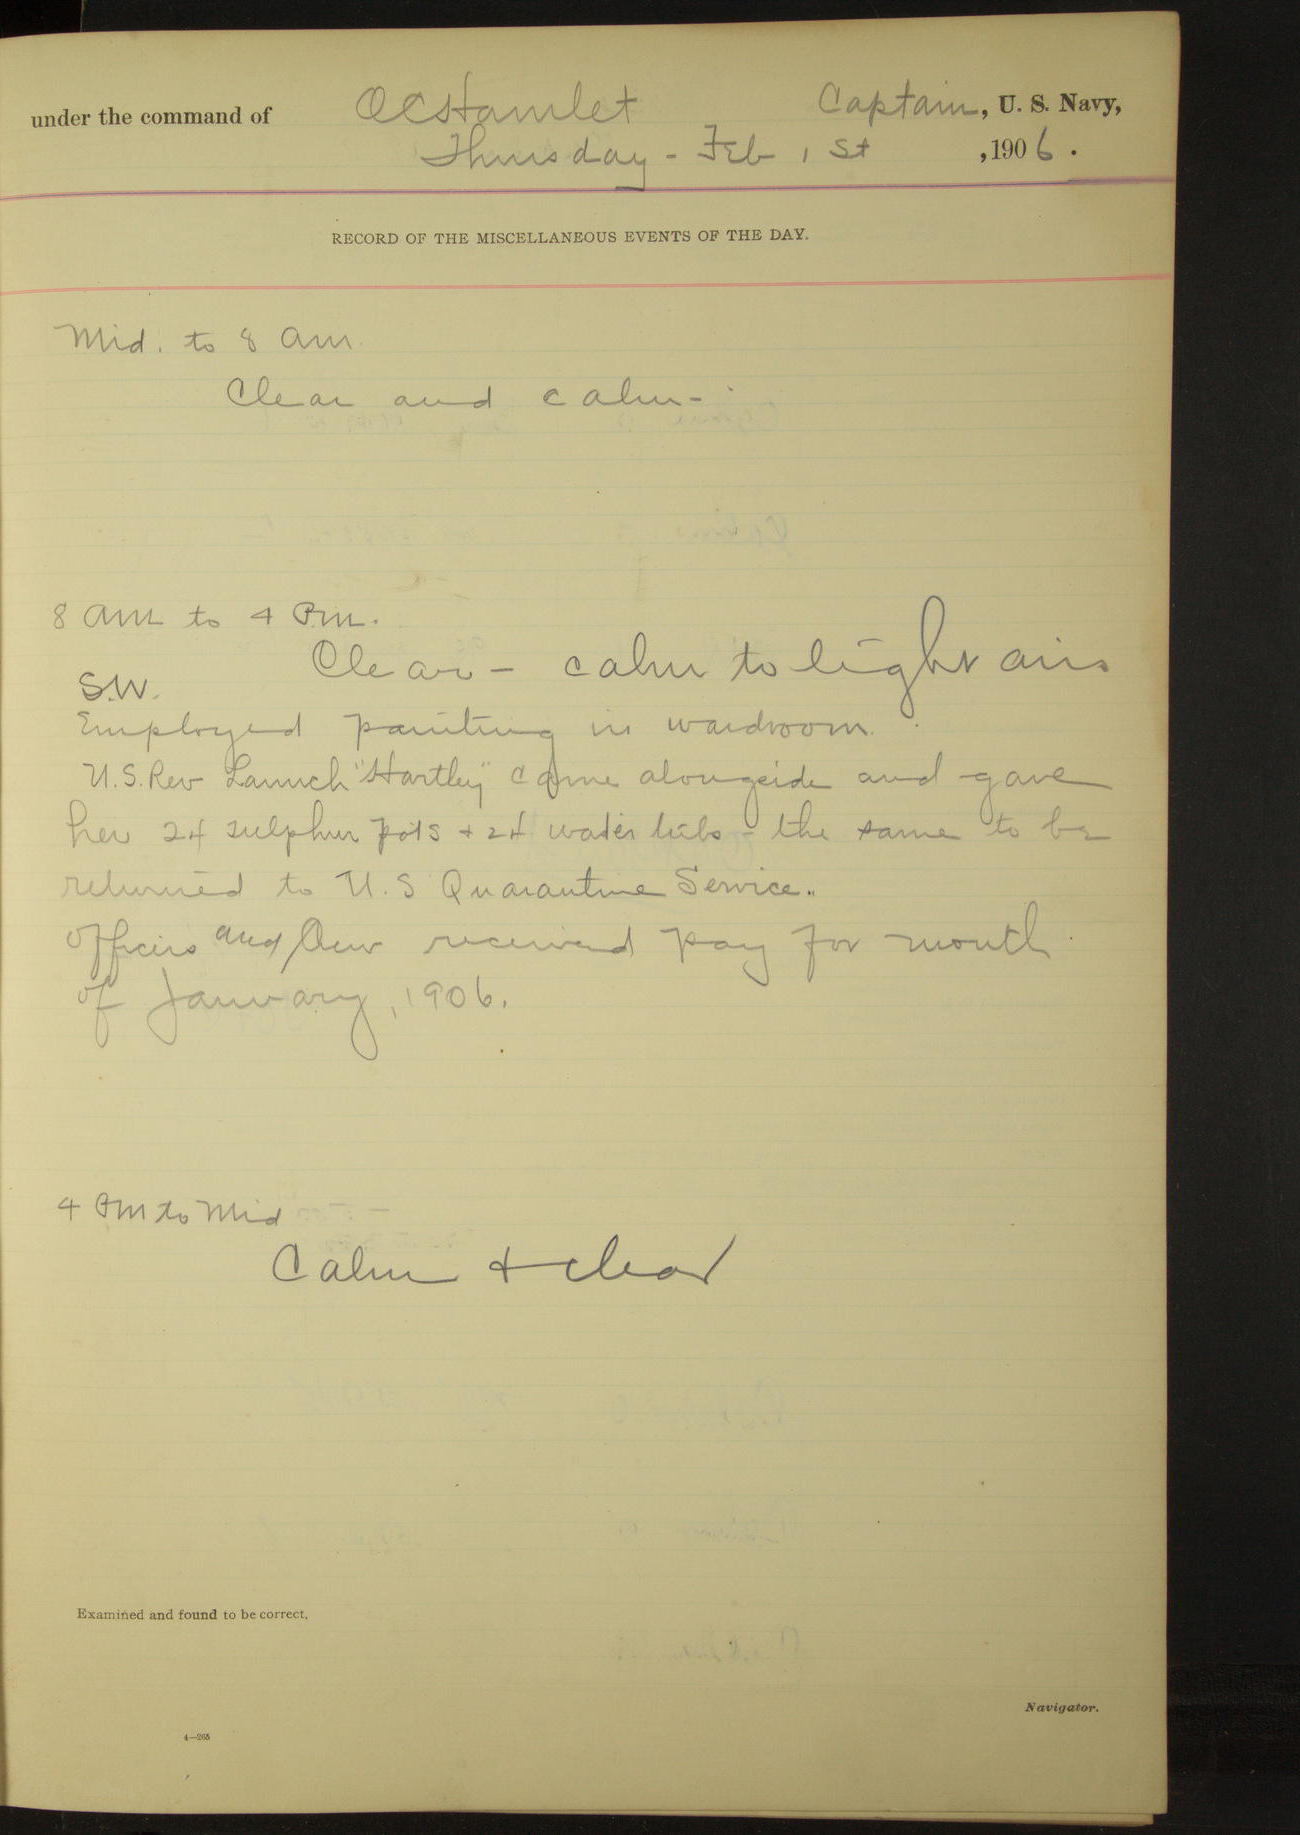 under the command of O C Hamlet Captain, U. S. Navy,
Thursday - Feb 1 st , 1906.
RECORD OF THE MISCELLANEOUS EVENTS OF THE DAY.
Mid. to 8 am.
Clear and calm-
8 am to 4 Pm.
Clear - calm to light airs
S.W.
Employed painting in wardroom.
U.S. Rev Launch "Hartley" came alongside and gave
her 24 sulphur pots + 24 water tubs - the same to be
returned to U.S Quarantine Service..
Officers and Crew received pay for month
of January, 1906.
4 Pm to Mid
Calm + clear
Examined and found to be correct.
Navigator.
4—265